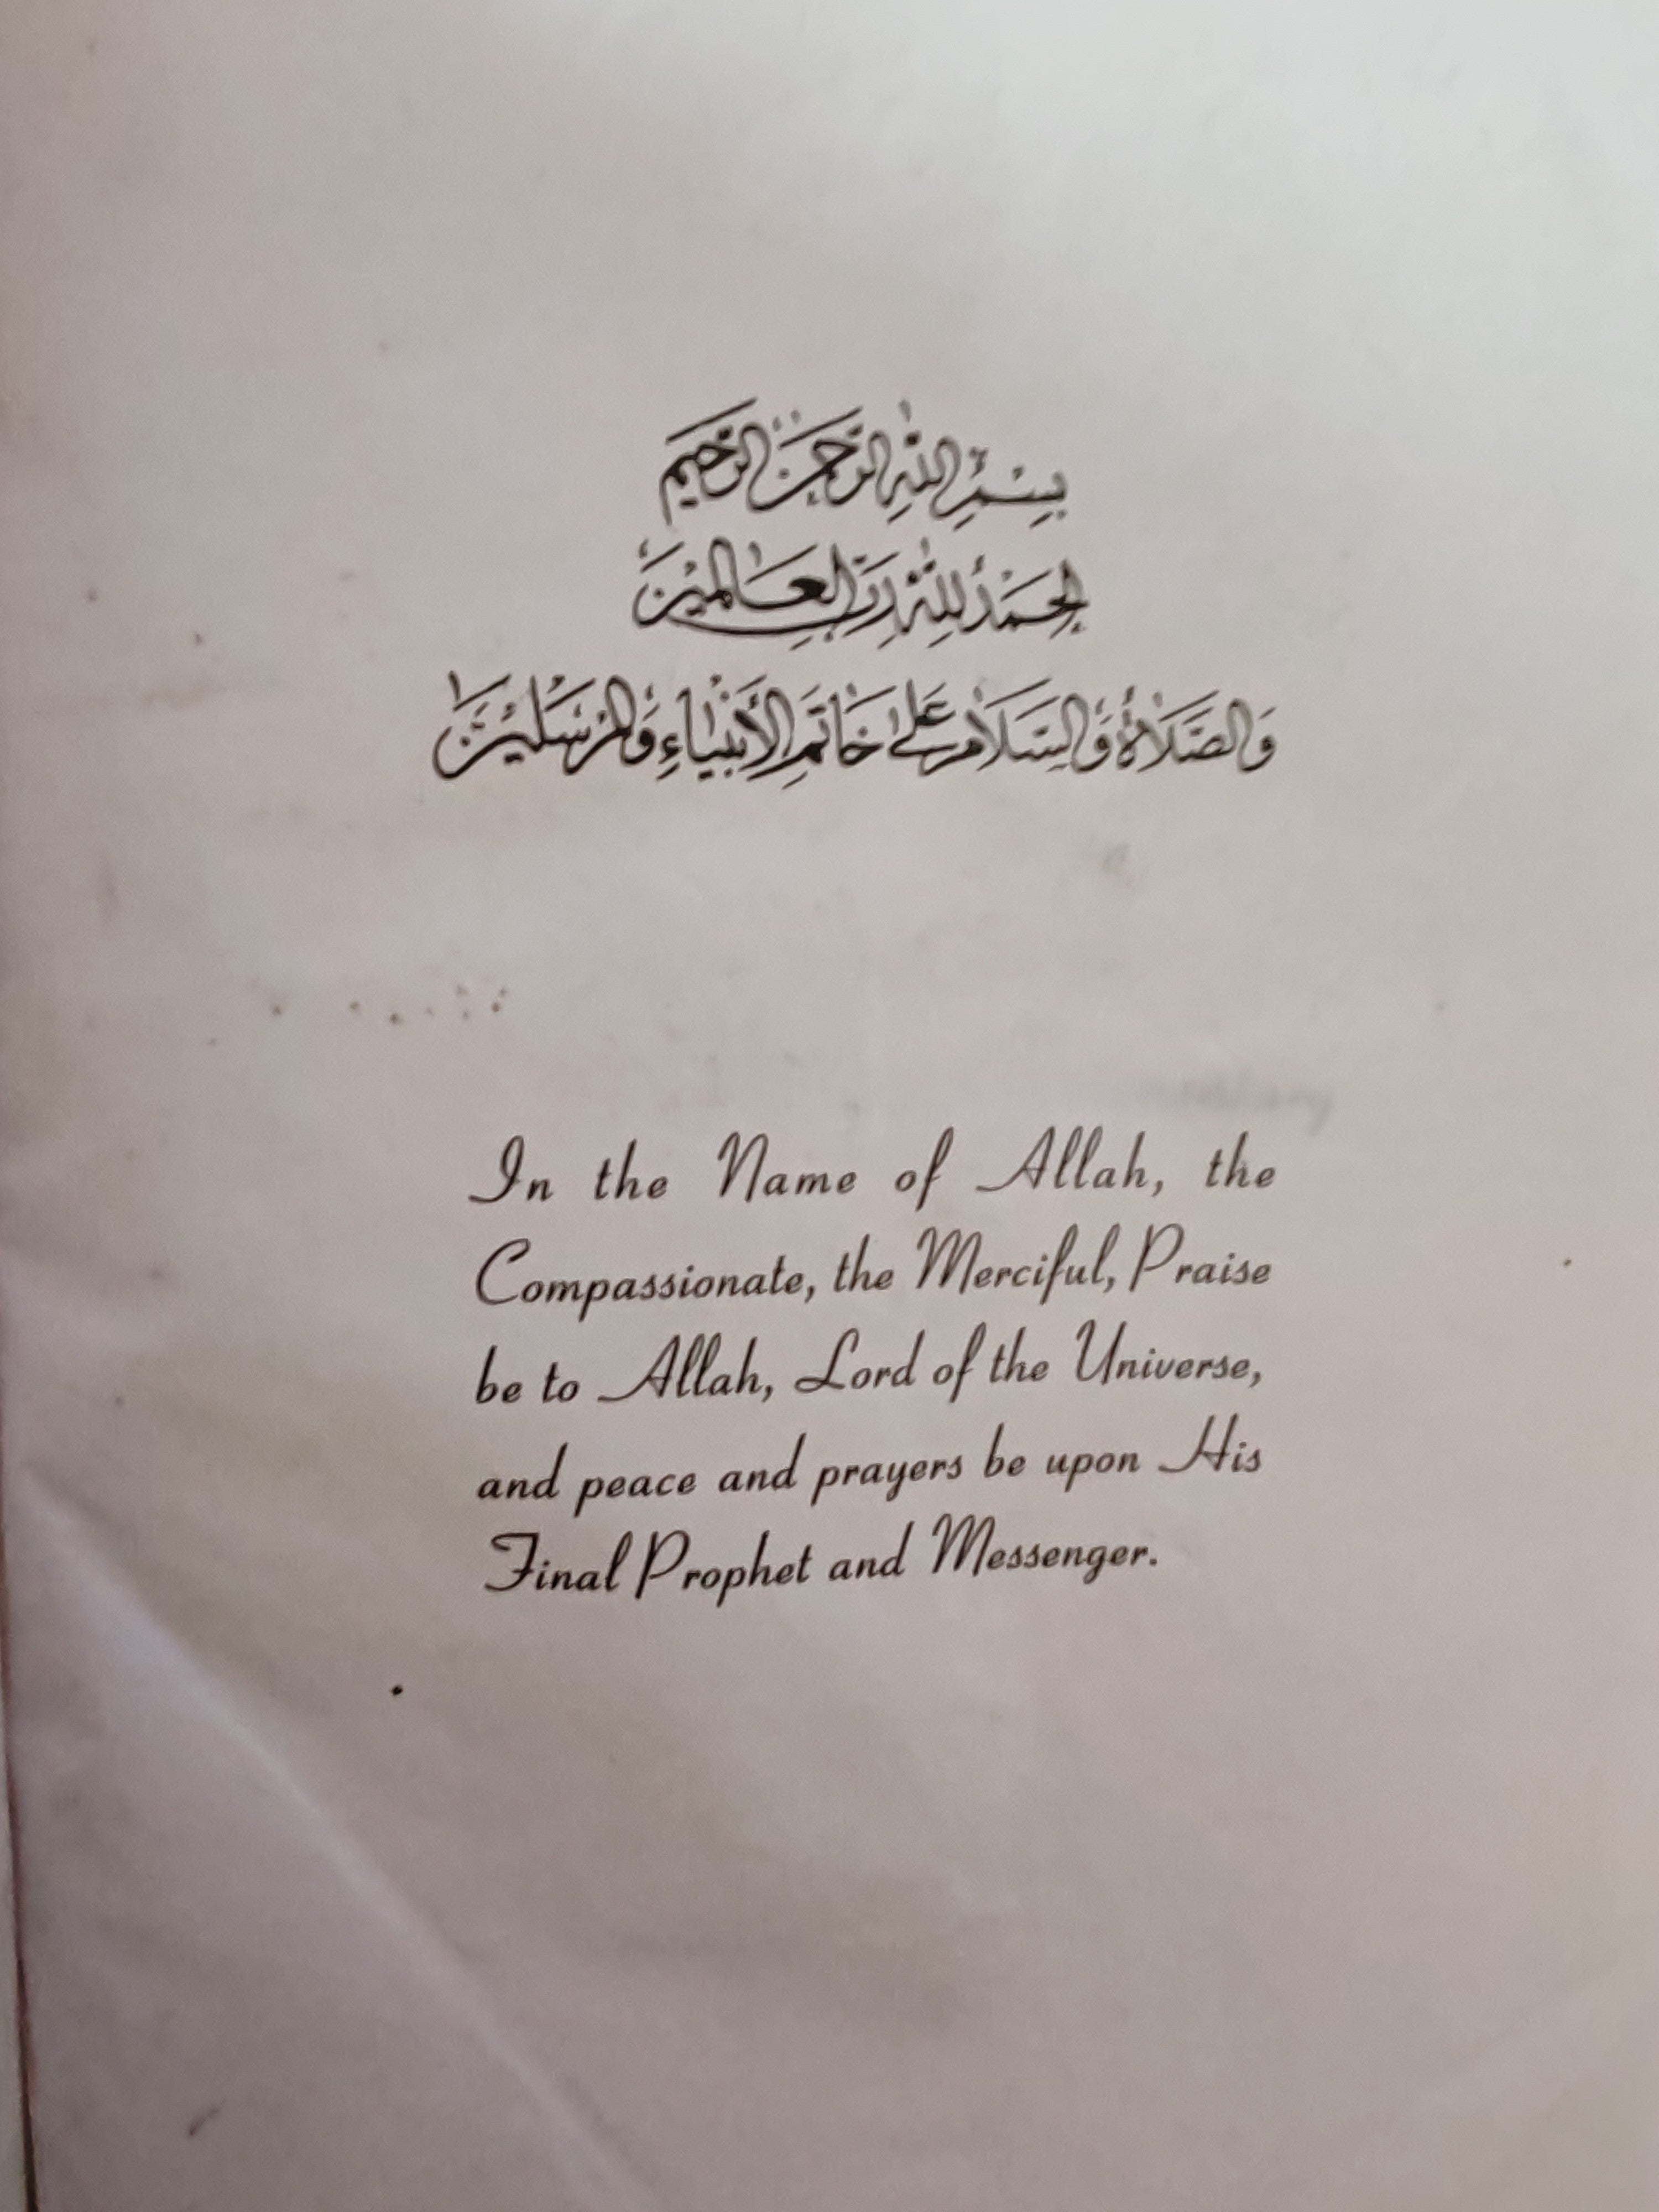 بِسْمِ اللهِ الرَّحْمٰنِ الرَّحِيمِ
الْحَمْدُ لِلّٰهِ رَبِّ الْعَالَمِيْنَ
وَالصَّلَاةُ وَالسَّلَامُ عَلٰى خَاتَمِ الْأَنْبِيَاءِ وَالْمُرْسَلِيْنَ
In the Name of Allah, the
Compassionate, the Merciful, Praise
be to Allah, Lord of the Universe,
and peace and prayers be upon His
Final Prophet and Messenger.